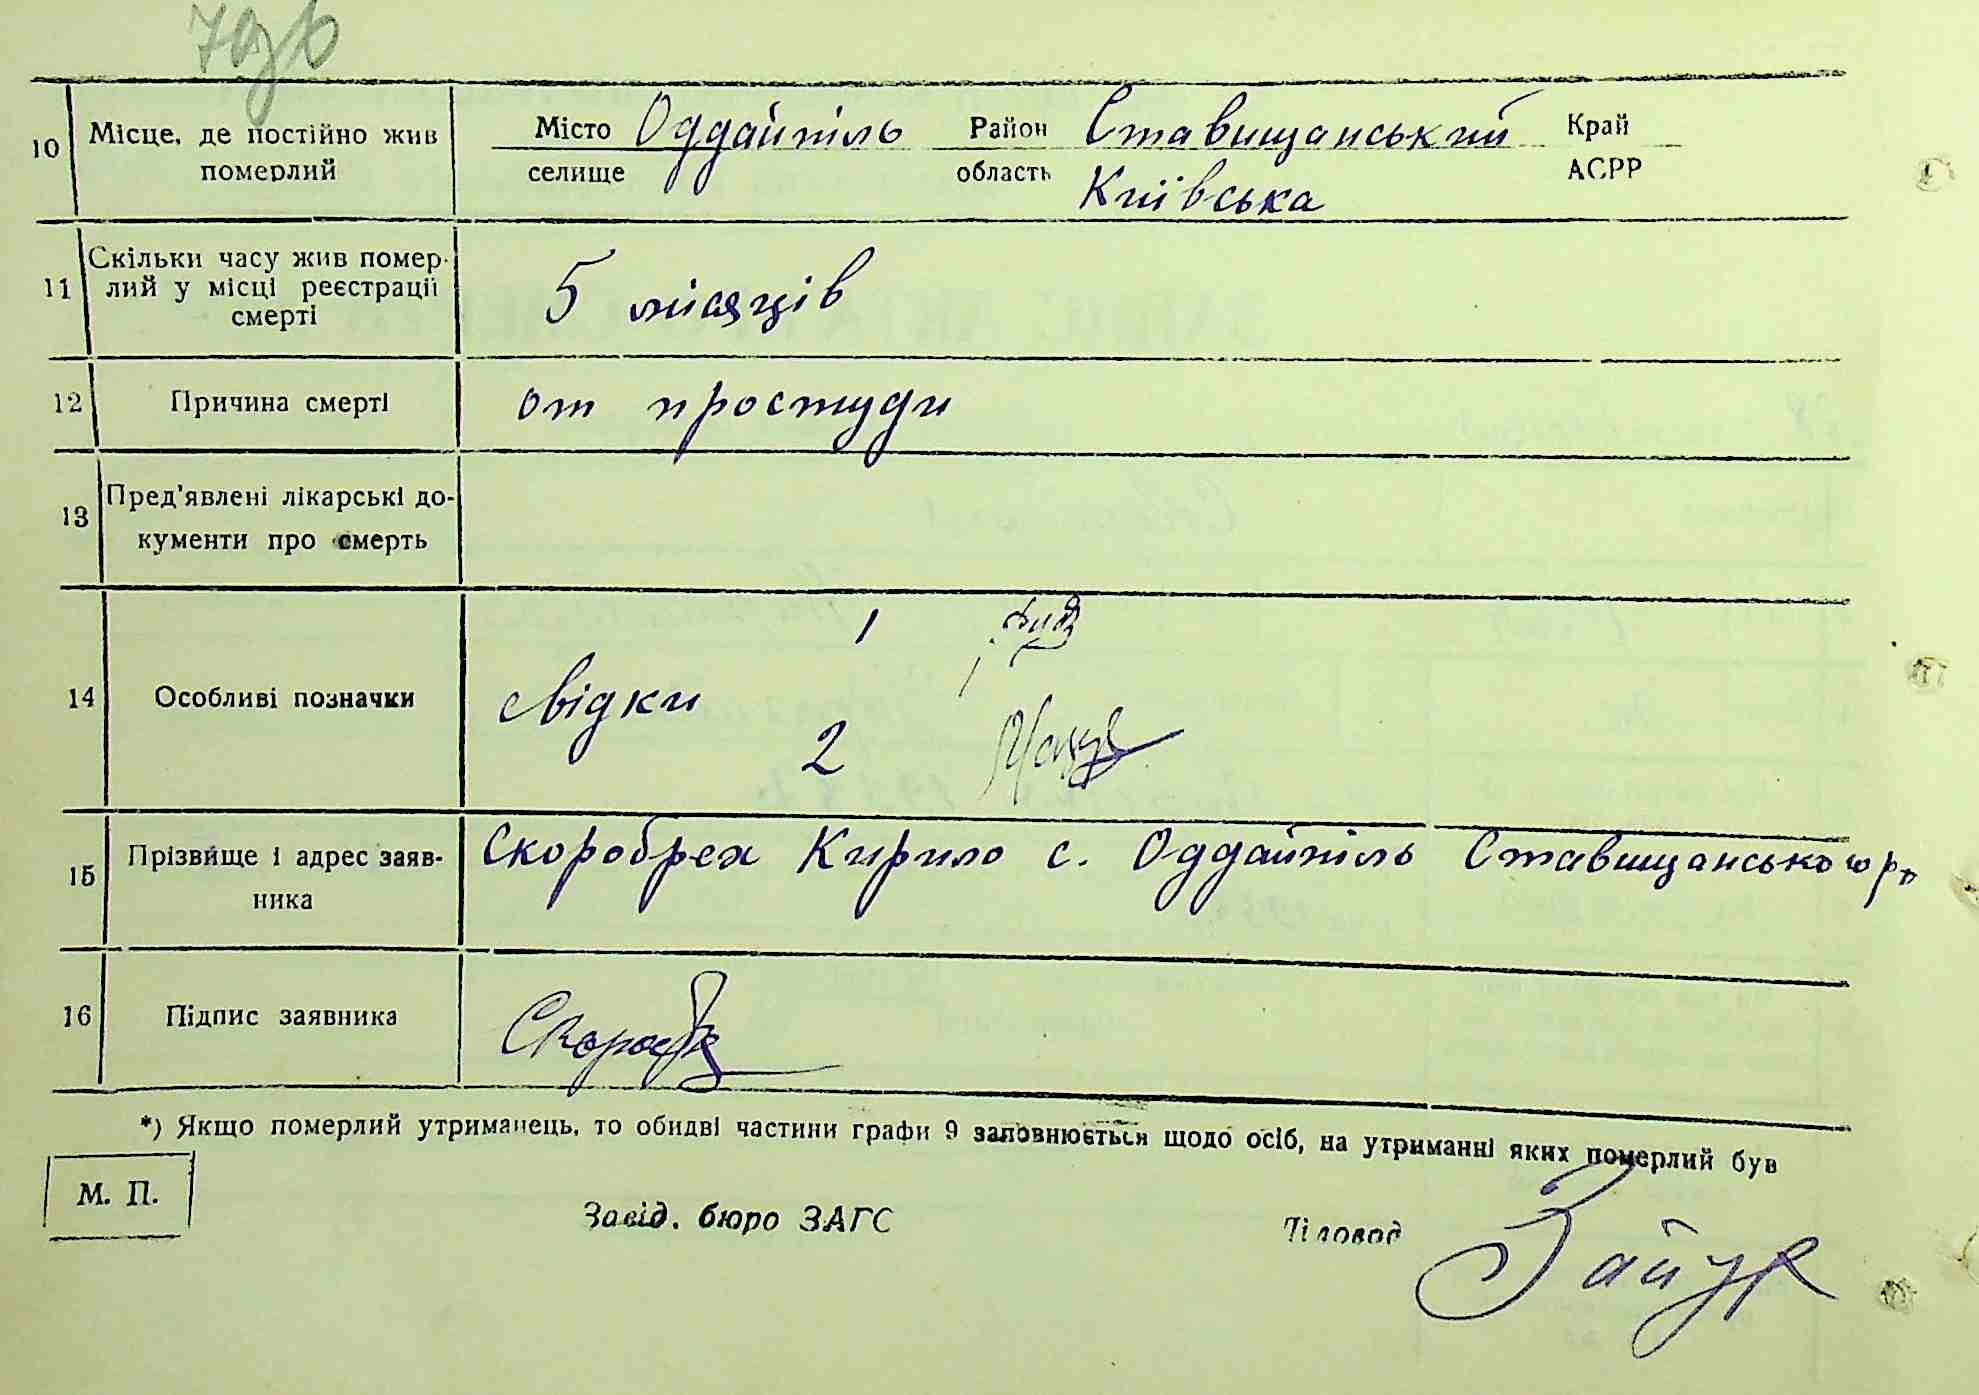 10 Місце, де постійно жив померлий Місто селище Оддайпіль Район область Ставищанський Київська Край АСРР
11 Скільки часу жив помер-
лий у місці реєстрації
смерті
5 місяців
12 Причина смерті от простуди
13 Пред'явлені лікарські до-
кументи про смерть
14 Особливі позначки свідки 1
2
15 Прізвище і адрес заяв-
ника
Скоробрех Кирило с. Оддайпіль Ставищанського р.
16 Підпис заявника
*) Якщо померлий утриманець, то обидві частини графи 9 заповнюється щодо осіб, на утриманні яких померлий був
М. П.
Завід. бюро ЗАГС Діловод